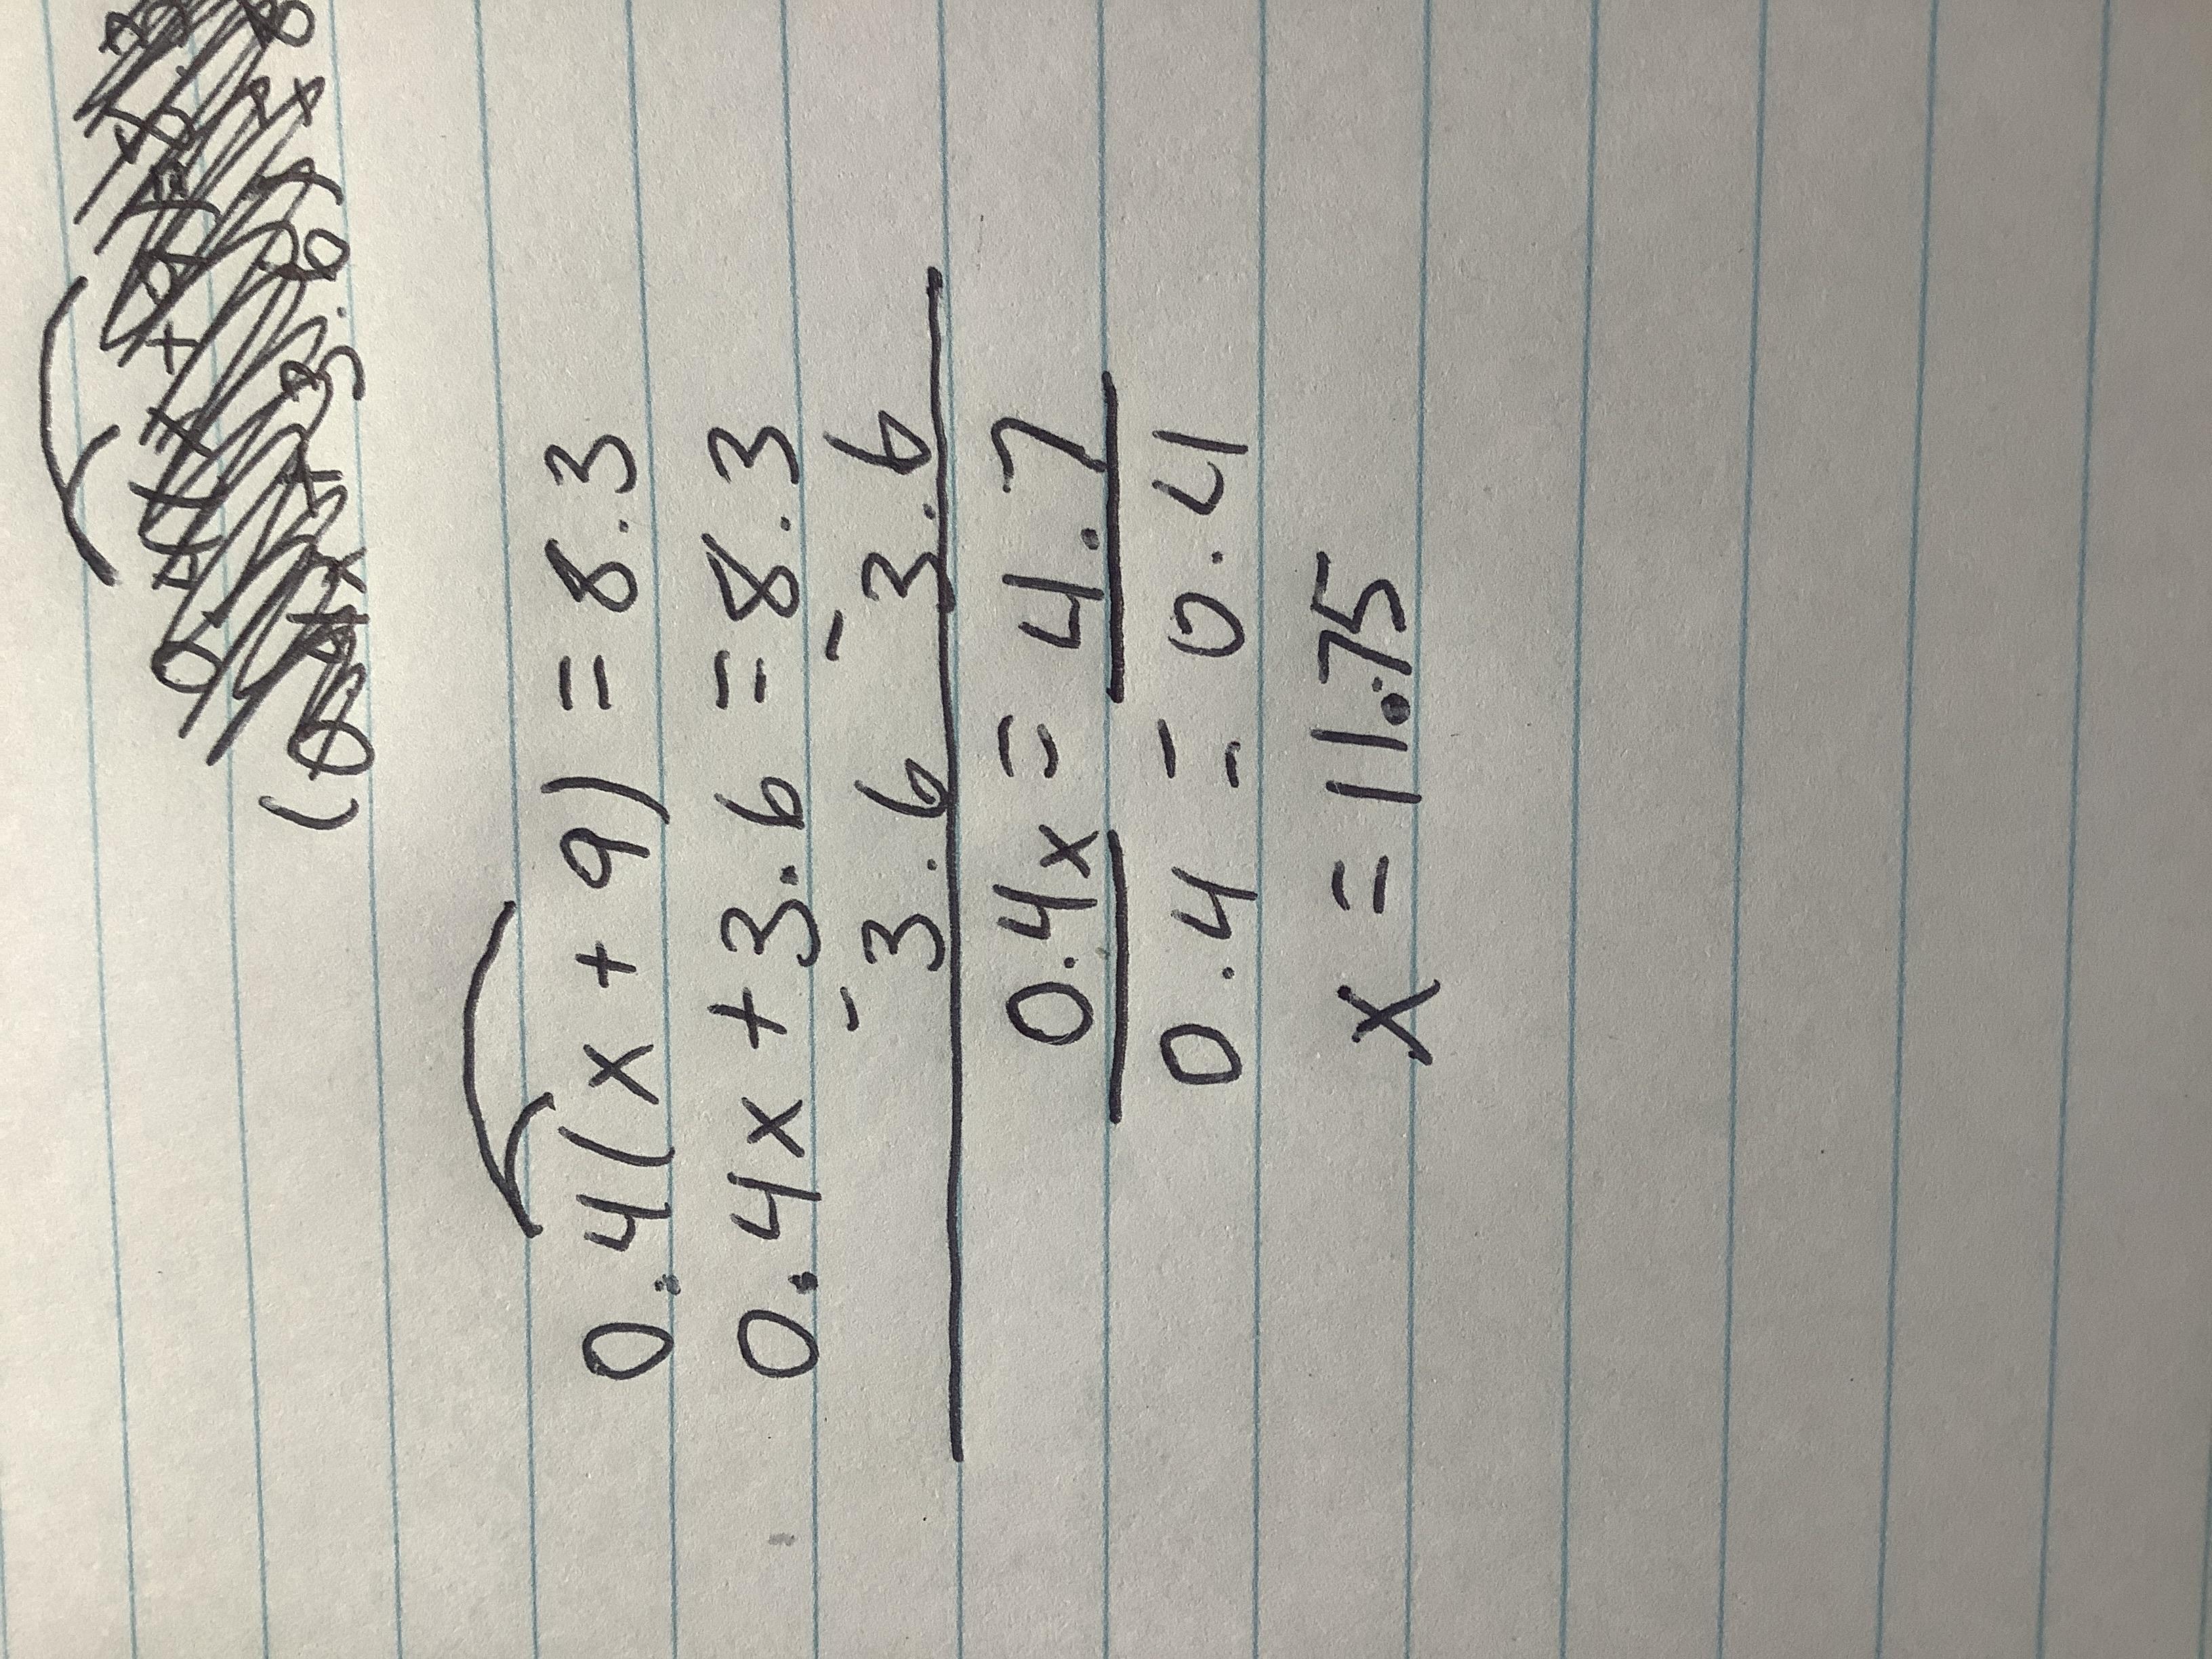 0.4(x + 9) = 8.3
0.4x + 3.6 = 8.3
-3.6 -3.6
0.4x = 4.7
0.4 = 0.4
x = 11.75